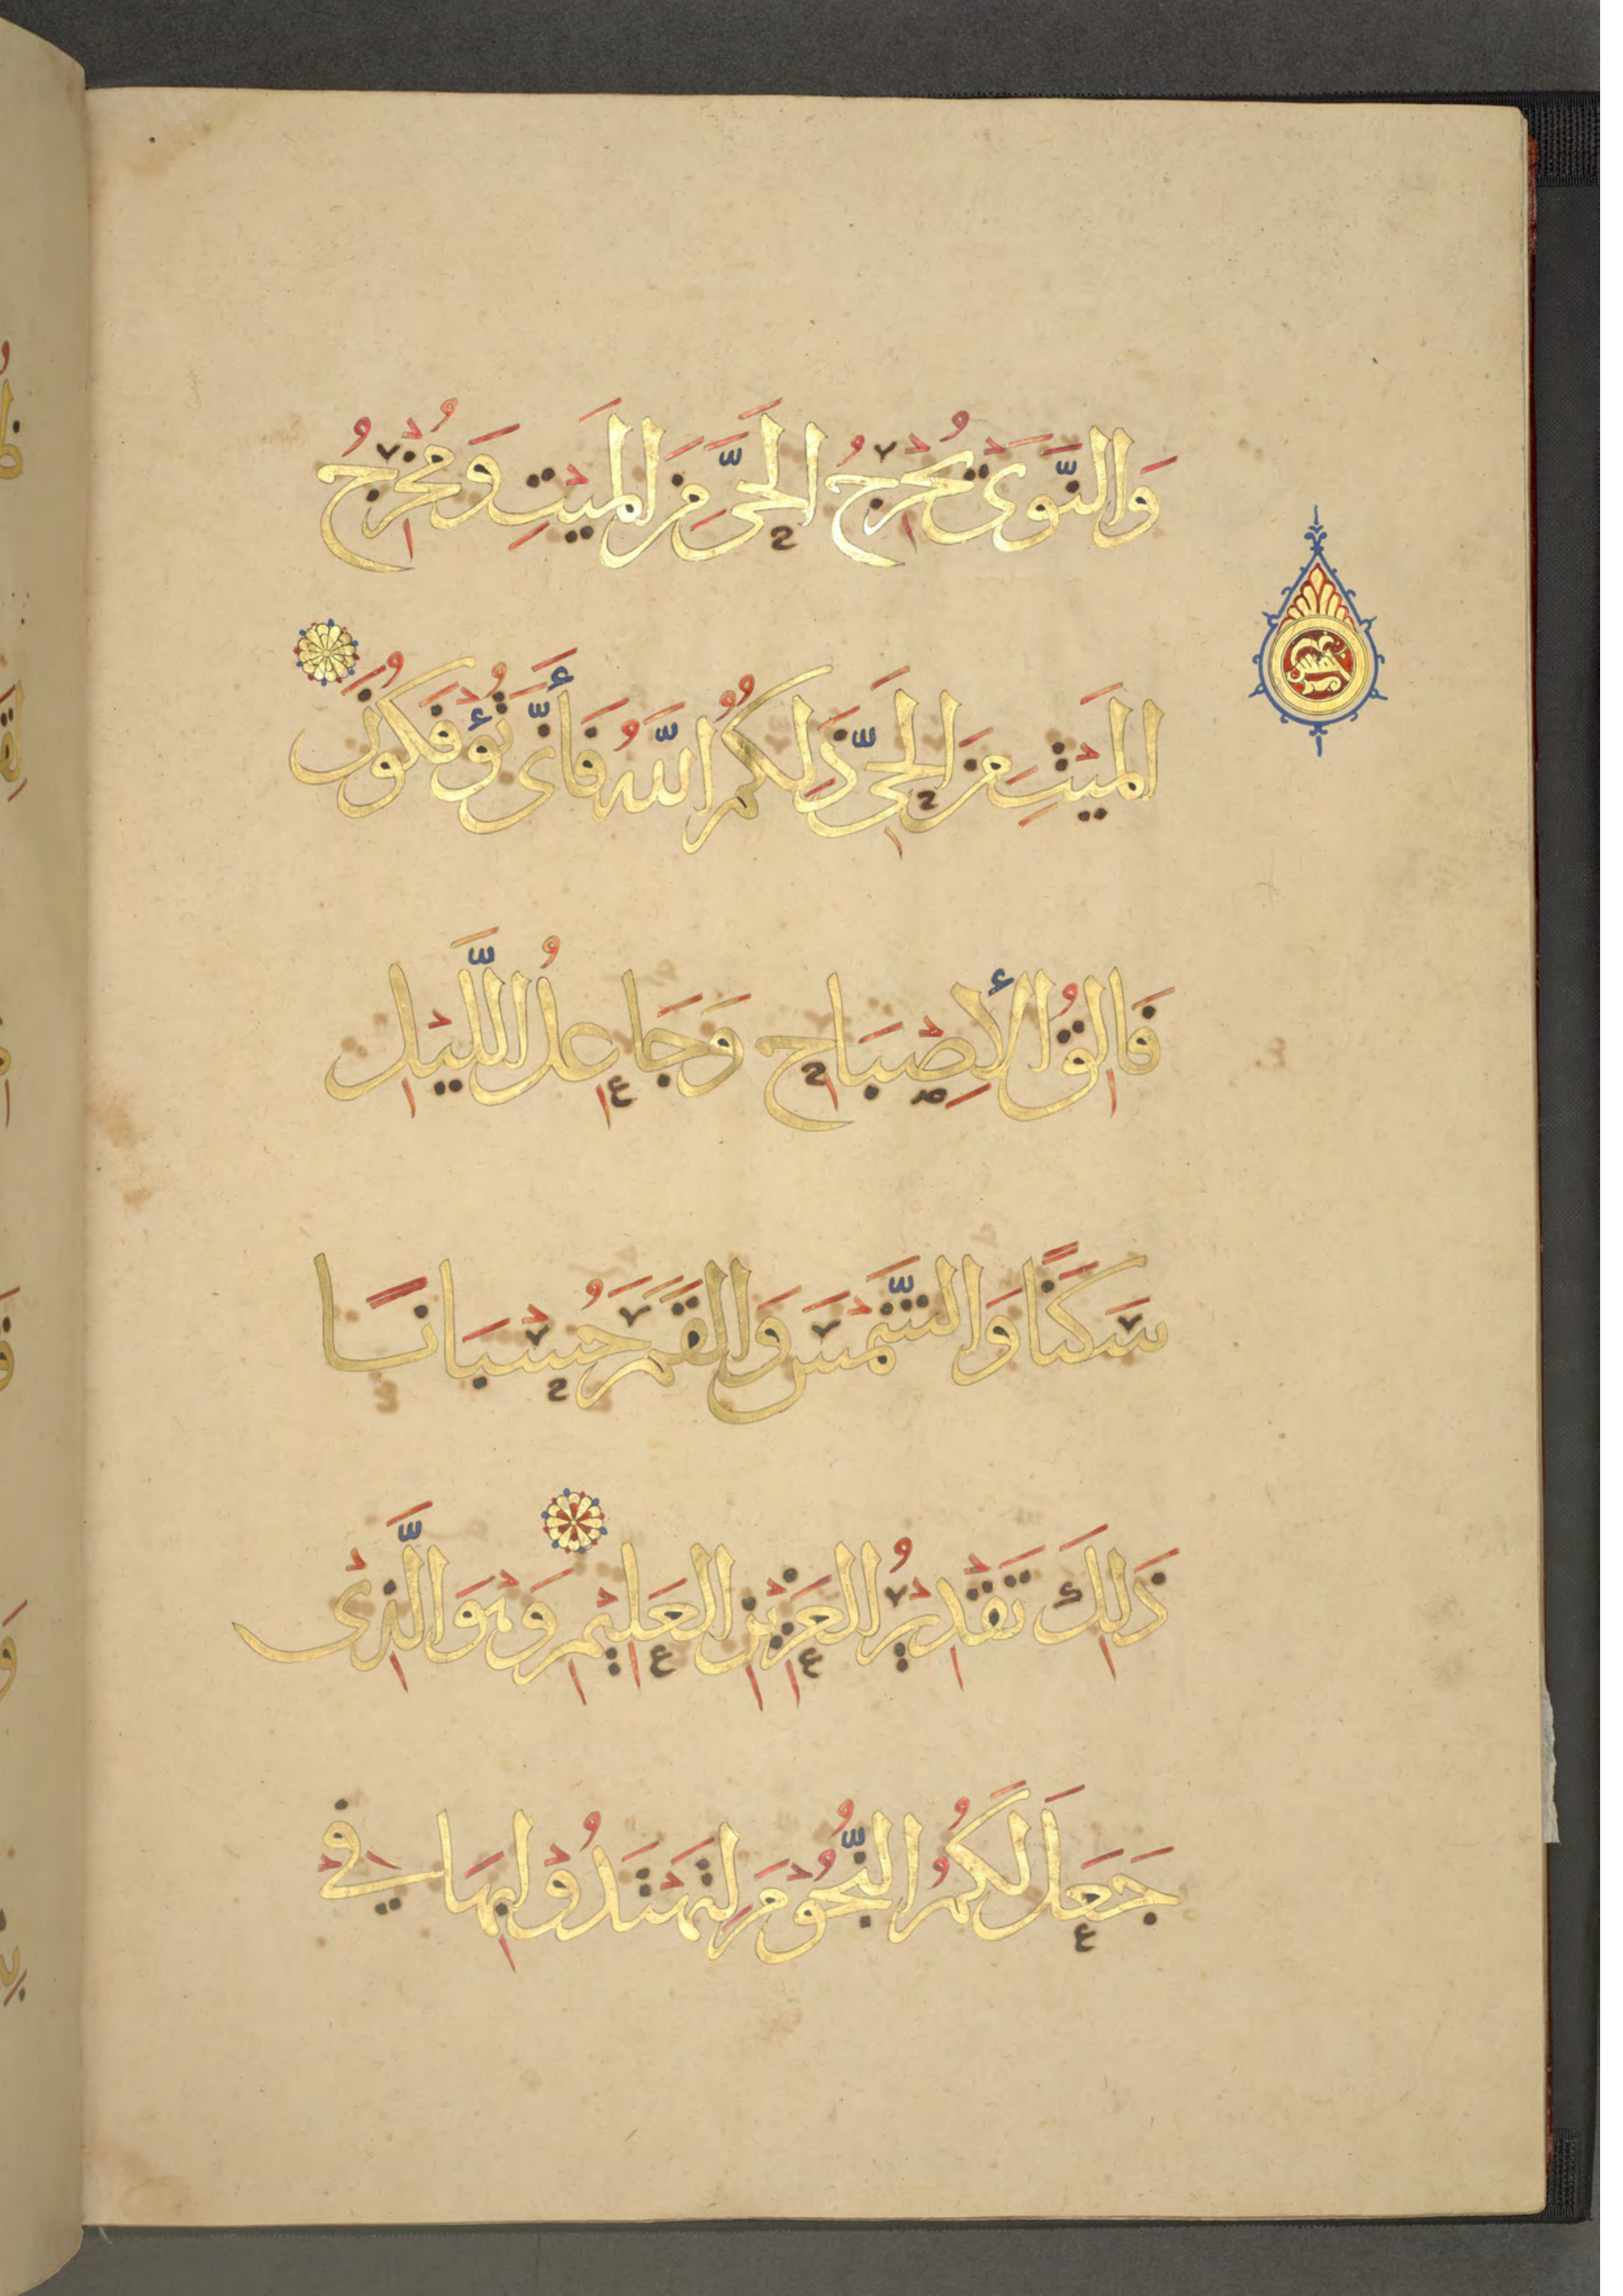 وَالنَّوَى يُخْرِجُ الْحَيَّ مِنَ الْمَيْتِ وَمُخْرِجُ
الْمَيْتِ مِنَ الْحَيِّ ذَلِكُمُ اللَّهُ فَأَنَّى تُؤْفَكُونَ
فَالِقُ الْأَصْبَاحِ وَجَاعِلُ اللَّيْلِ
سَكَنًا وَالشَّمْسَ وَالْقَمَرَ حُسْبَانًا
ذَلِكَ تَقْدِيرُ الْعَزِيزِ الْعَلِيمِ وَهْوَ الَّذِي
جَعَلَ لَكُمُ النُّجُومَ لِتَهْتَدُوا بِهَا فِي